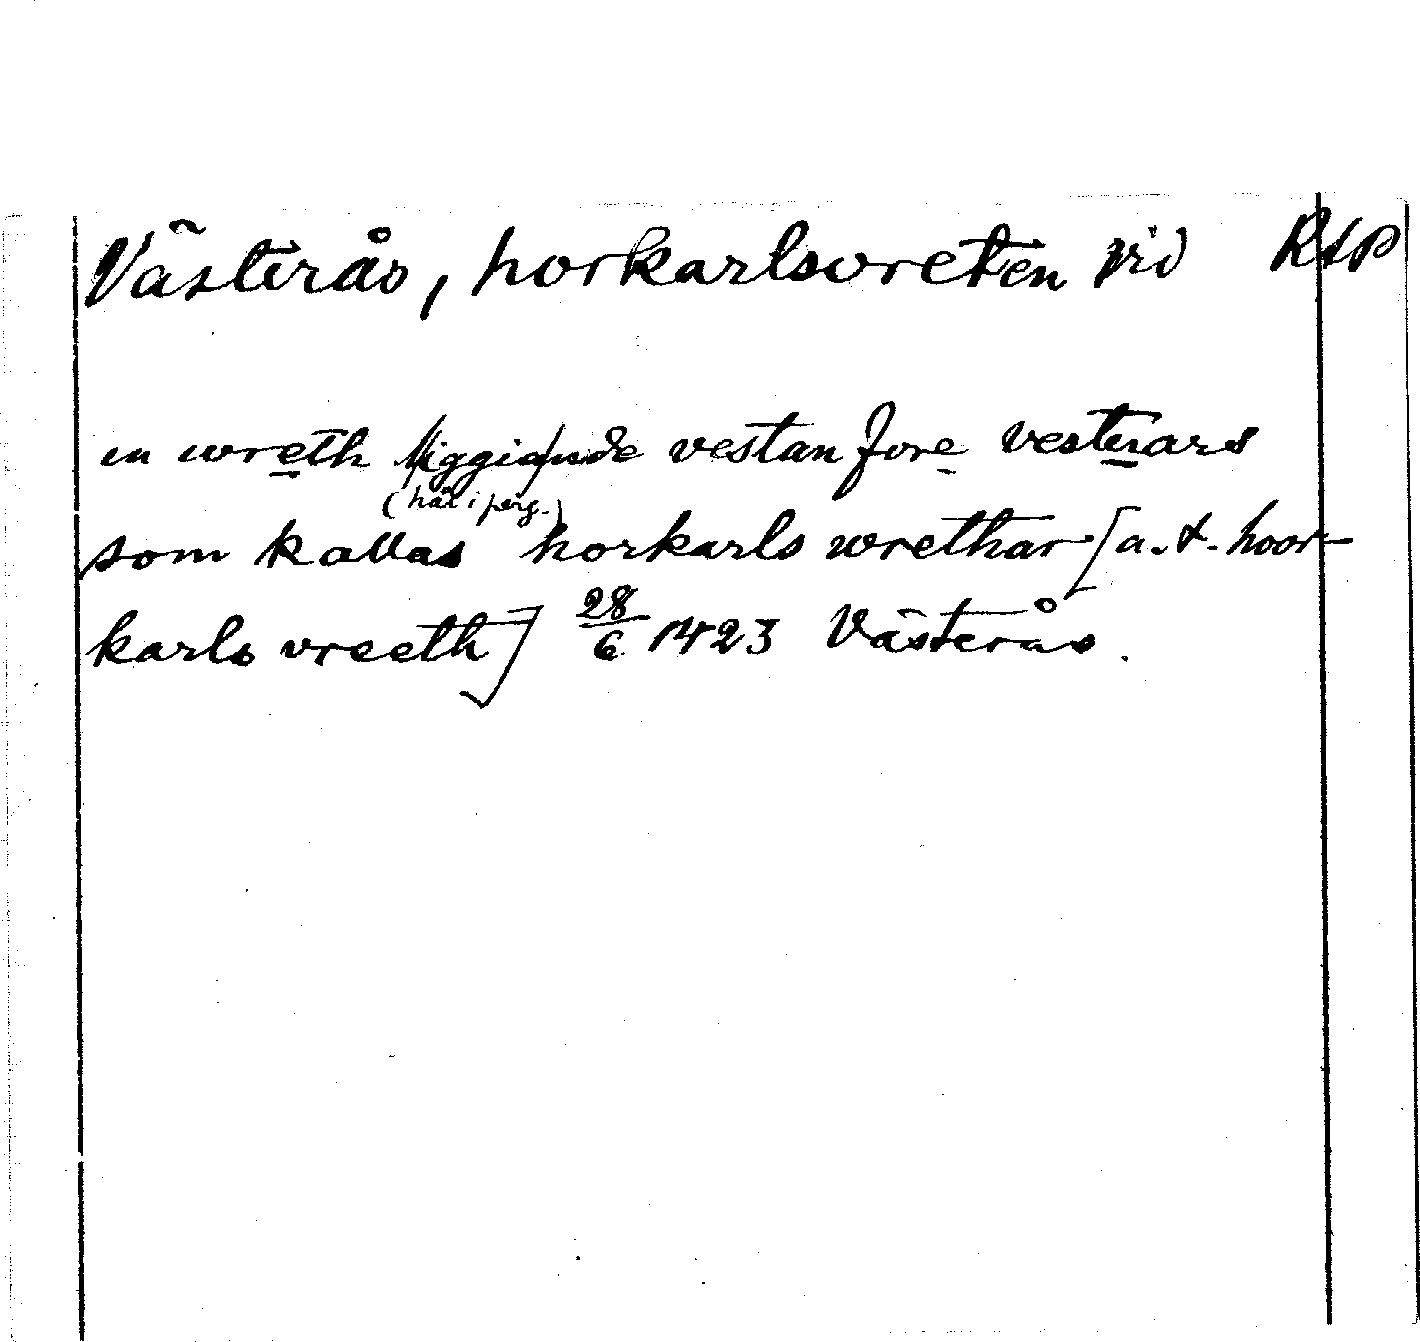 Västerås, horkarlsvreten vid RAP
en wreth l/iggia/nde vestan fore vesterars
(hål i perg.)
som kallas horkarls wrethar [a. t. hoor-
karls vreeth] 28/6 1423 Västerås.